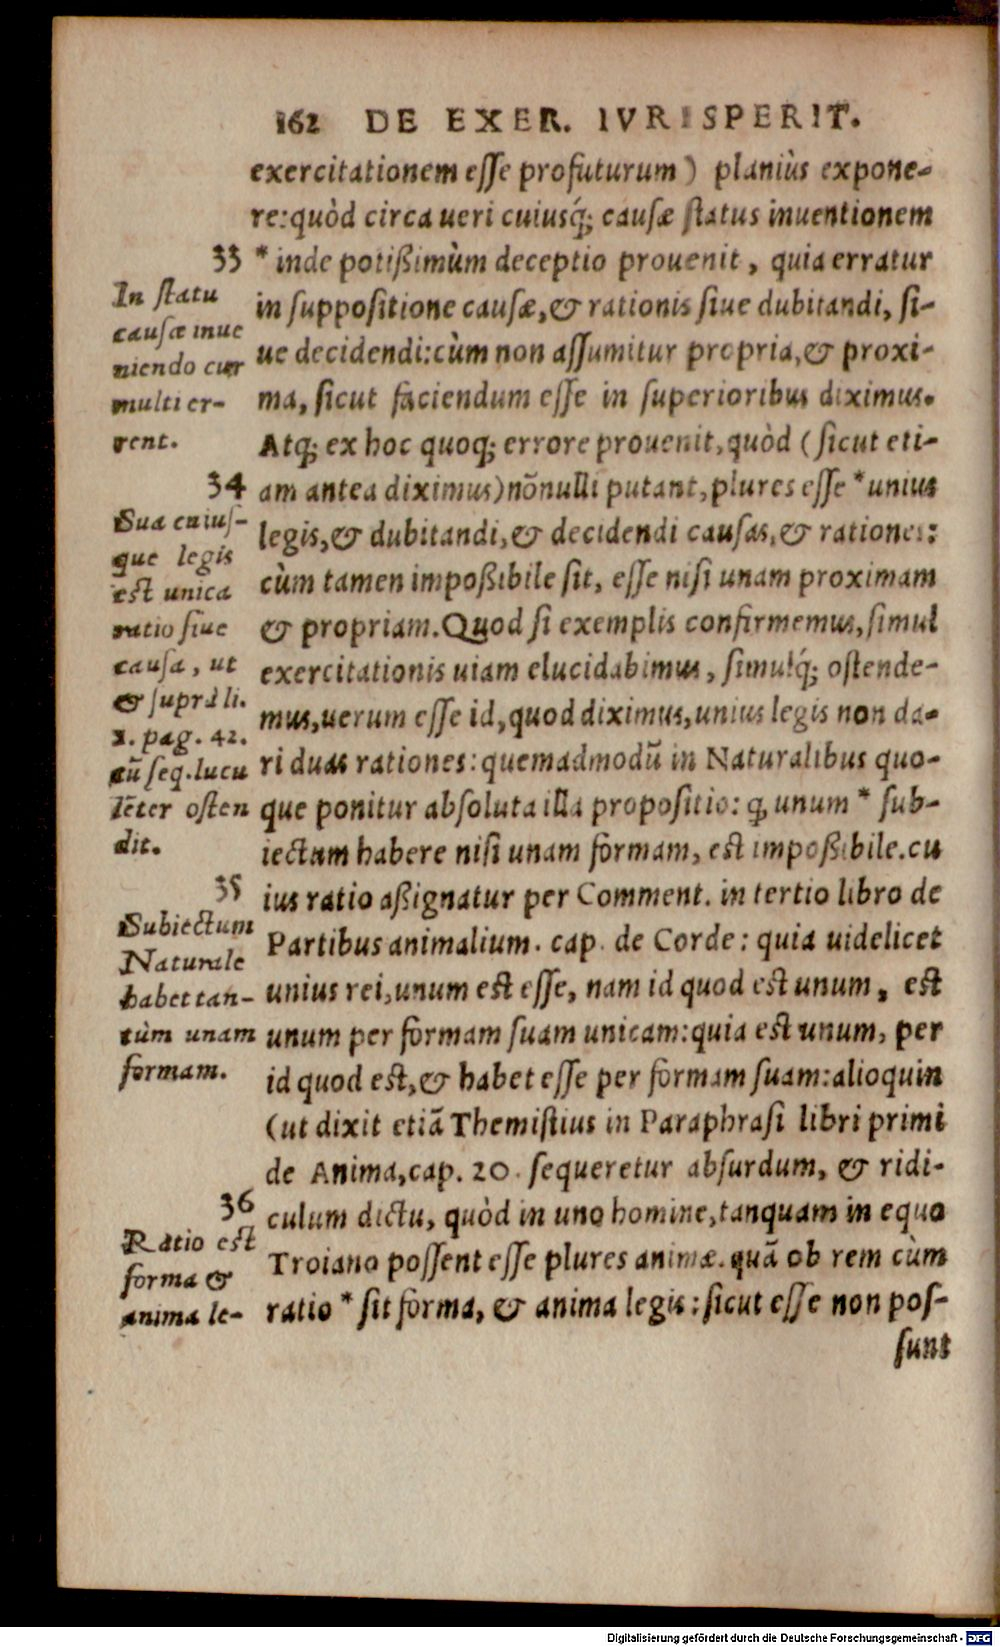 162 DE EXER. IVRISPERIT.
exercitationem esse profuturum) planiùs expone-
re:quòd circa ueri cuiusq́; causæ status inuentionem
* inde potißimùm deceptio prouenit, quia erratur
in suppositione causæ,& rationis siue dubitandi, si-
ue decidendi:cùm non assumitur propria,& proxi-
ma, sicut faciendum esse in superioribus diximus.
Atq; ex hoc quoq; errore prouenit,quòd (sicut eti-
am antea diximus)nõnulli putant,plures esse *unius
legis,& dubitandi,& decidendi causas,& rationes:
cùm tamen impoßibile sit, esse nisi unam proximam
& propriam.Quod si exemplis confirmemus,simul
exercitationis uiam elucidabimus, simulq́; ostende-
mus,uerum esse id,quod diximus,unius legis non da-
ri duas rationes:quemadmodũ in Naturalibus quo-
que ponitur absoluta illa propositio: q; unum * sub-
iectum habere nisi unam formam, est impoßibile.cu
ius ratio aßignatur per Comment. in tertio libro de
Partibus animalium. cap. de Corde: quia uidelicet
unius rei,unum est esse, nam id quod est unum, est
unum per formam suam unicam:quia est unum, per
id quod est,& habet esse per formam suam:alioquin
(ut dixit etiã Themistius in Paraphrasi libri primi
de Anima,cap. 20. sequeretur absurdum, & ridi-
culum dictu, quòd in uno homine,tanquam in equo
Troiano possent esse plures animæ. quã ob rem cùm
ratio * sit forma, & anima legis:sicut esse non pos-
sunt
33
In statu
causæ inue
niendo cur
multi er-
rent.
34
Sua cuius-
que legis
est unica
ratio siue
causa, ut
& suprà li.
1. pag. 42.
cũ seq.lucu
lẽter osten
dit.
35
Subiectum
Naturale
habet tan-
tùm unam
formam.
36
Ratio est
forma &
anima le-
Digitalisierung gefördert durch die Deutsche Forschungsgemeinschaft - DFG